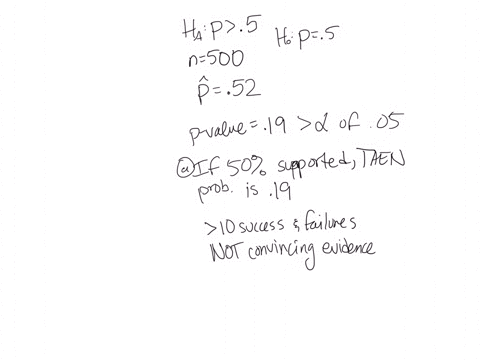 HA: p > .5
H0: p = .5
n=500
p̂ = .52
p-value = .19 > α of .05
ⓐ If 50% supported, THEN
prob. is .19
>10 success & failures
NOT convincing evidence